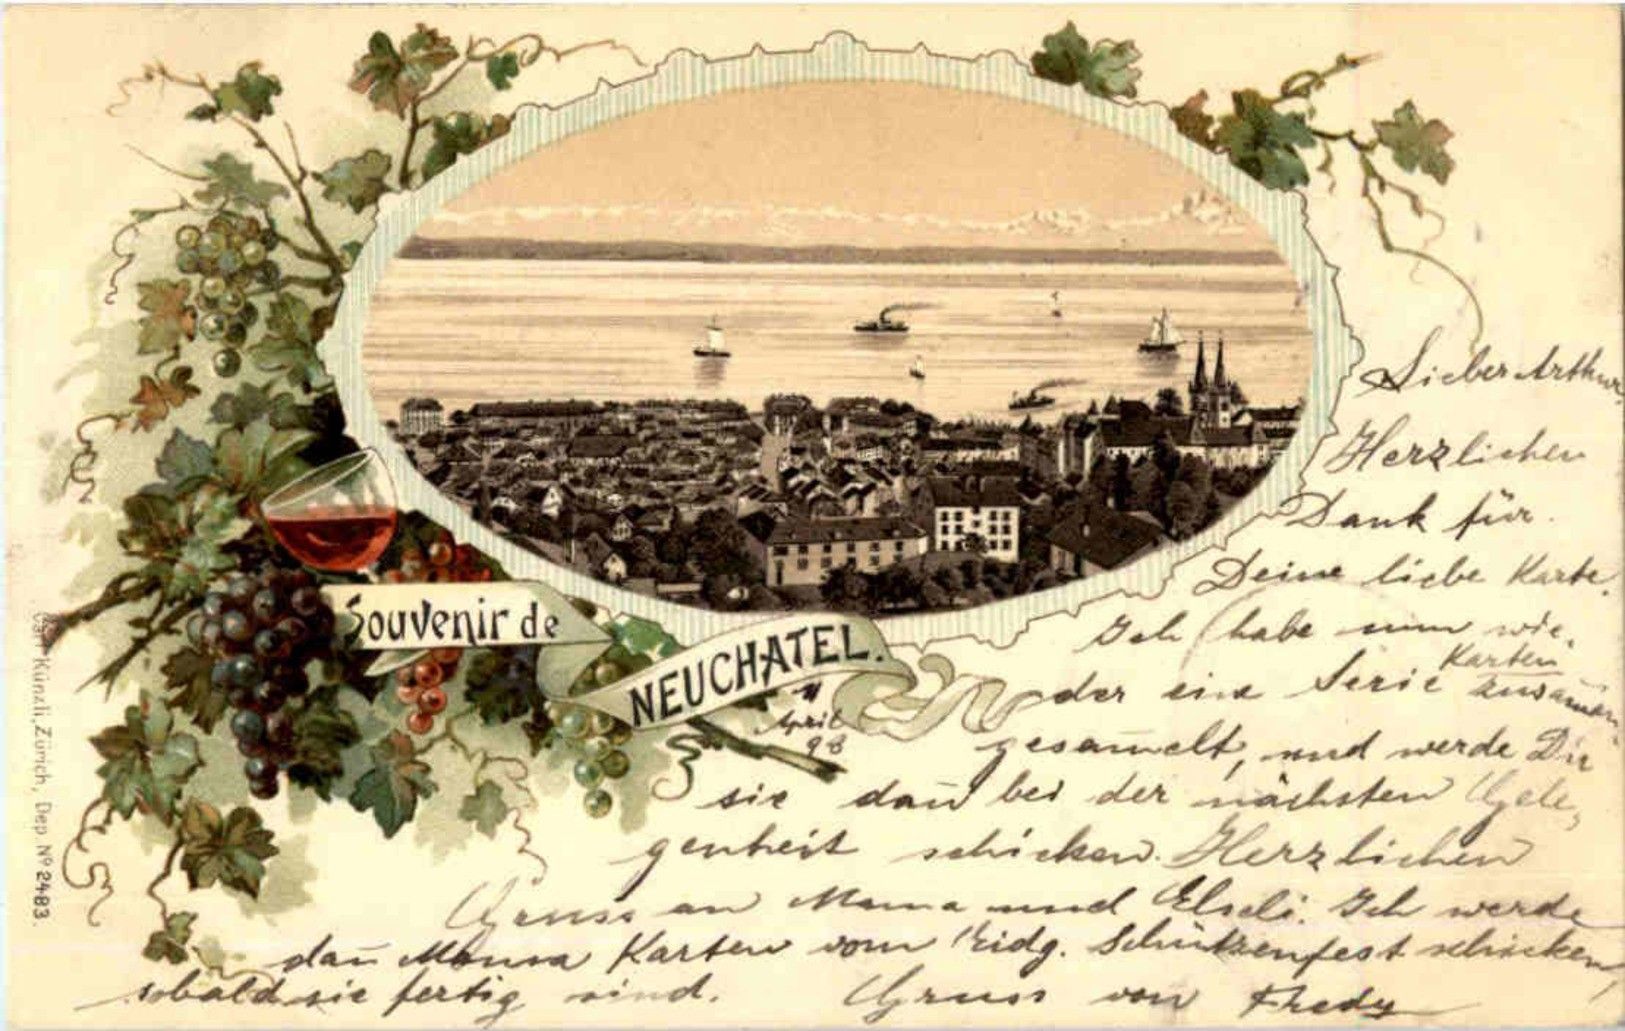 Souvenir de
NEUCHATEL.
11
April
98
Lieber Arthur,
Herzlichen
Dank für
Deine liebe Karte.
Ich habe nun wie-
der eine Serie Karten zusam̄en
gesam̄elt, und werde Dir
sie dan̄ bei der nächsten Gele-
genheit schicken. Herzlichen
Gruss an Mama und Elseli. Ich werde
dan̄ Mama Karten vom eidg. Schützenfest schicken,
sobald sie fertig sind. Gruss von Fredy
Carl Künzli, Zürich, Dep. Nº 2483.